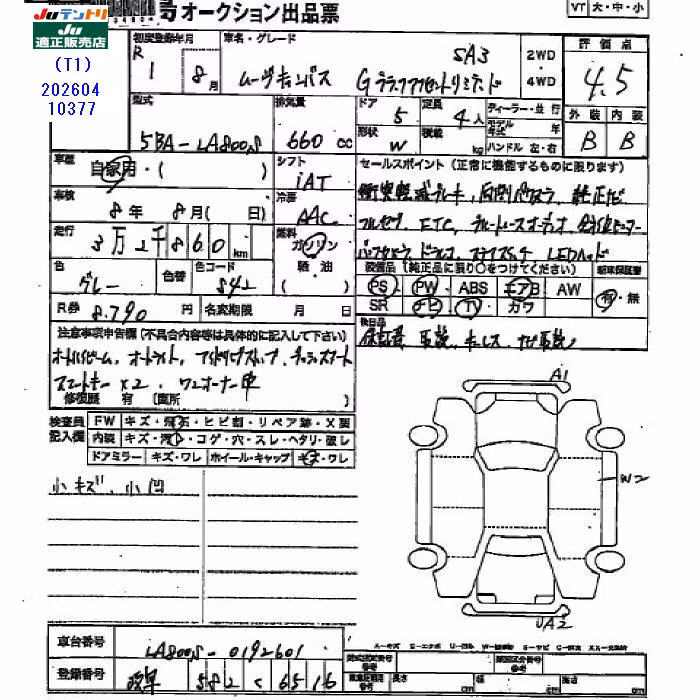 Juテントリ
Ju
適正販売店
(T1)
202604
10377
号オークション出品票
VT 大・中・小
初度登録年月
R 1
8月
車名・グレード
ムーヴキャンバス G
SA3
2WD
4WD
評価点
4.5
外装 内装
B B
型式
5BA-LA800S
排気量
660 cc
ドア
5
定員
4人
ディーラー・並行
形状
W
積載
kg
モデル年式 年
ハンドル 左・右
車歴
自家用・( )
シフト
IAT
セールスポイント(正常に機能するものに限ります)
衝突軽減ブレーキ、両側パワスラ、純正ナビ
フルセグ、ETC、ブルートゥースオーディオ、
バックカメラ、ドラレコ、ステアスイッチ LEDヘッド
車検
8年 8月( 日)
冷房
AAC
走行
3万2千860km
燃料
ガソリン
軽・油
( )
色
グレー
色替
色コード
S42
装備品(純正品に限り○をつけてください)
PS PW ABS エアB AW
SR ナビ TV カワ
新車保証書
有・無
R券
8.790 円
名変期限 月 日
後日品
保証書 取説、キーレス ナビ取説
注意事項申告欄(不具合内容等は具体的に記入して下さい)
オートハイビーム、オートライト、アイドリングストップ、プッシュスタート
スマートキー×2、ワンオーナー車
修復歴 有 (箇所 )
検査員記入欄
FW キズ・飛石・ヒビ割・リペア跡・X要
内装 キズ・汚れ・コゲ・穴・スレ・ヘタリ・破レ
ドアミラー キズ・ワレ ホイール・キャップ キズ・ワレ
小キズ、小凹
A1
W2
UA2
車台番号
LA800S-0192601
登録番号
582 く 6516
長さ cm 幅 cm 高さ cm